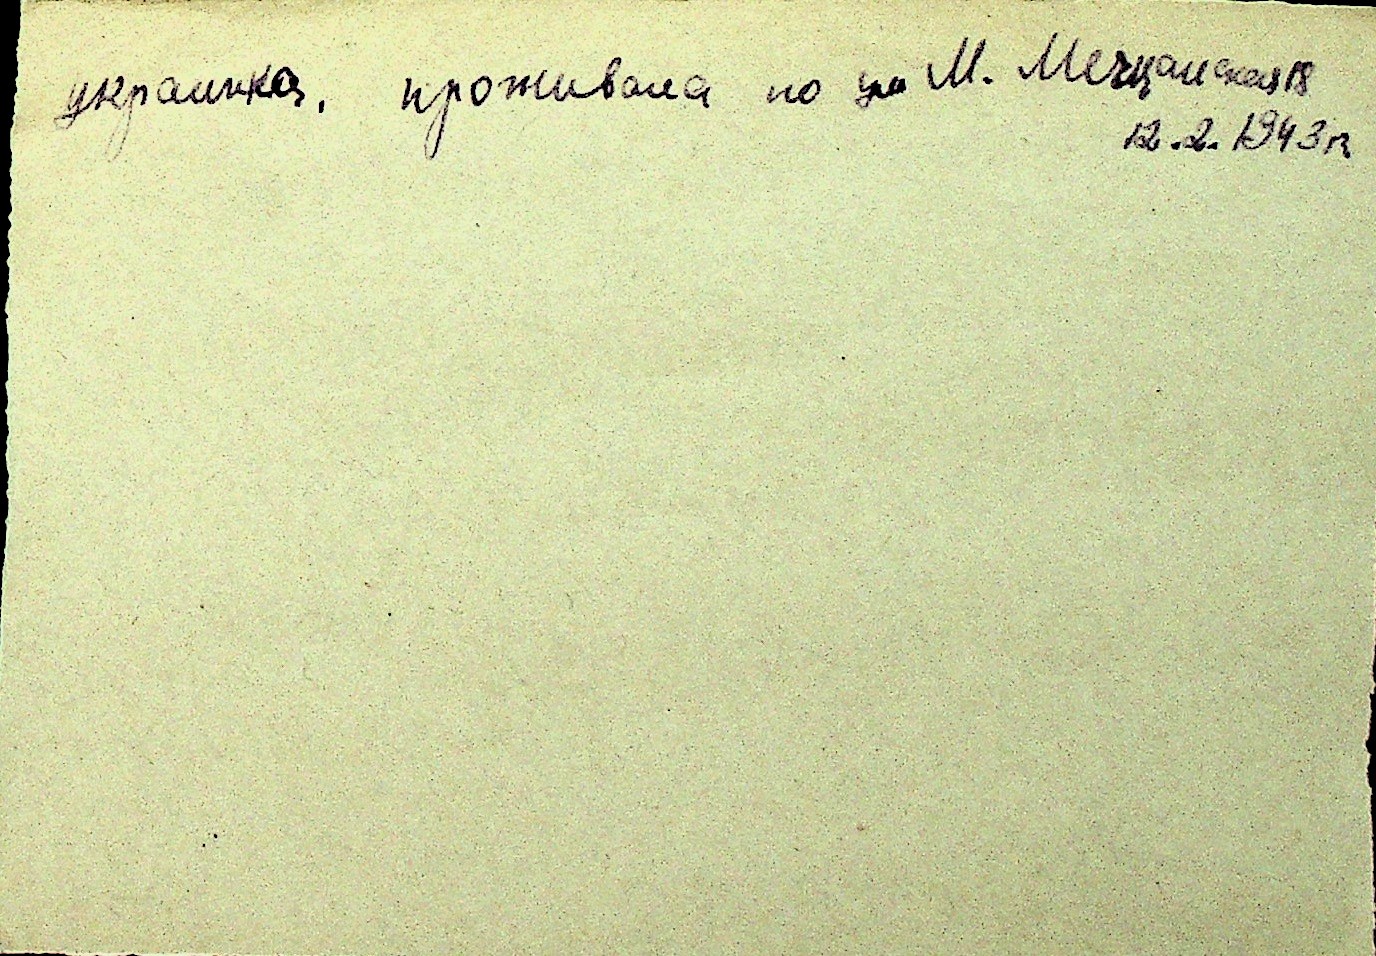 украинка, проживала по ул М. Мещанская 18
12.2.1943 г.